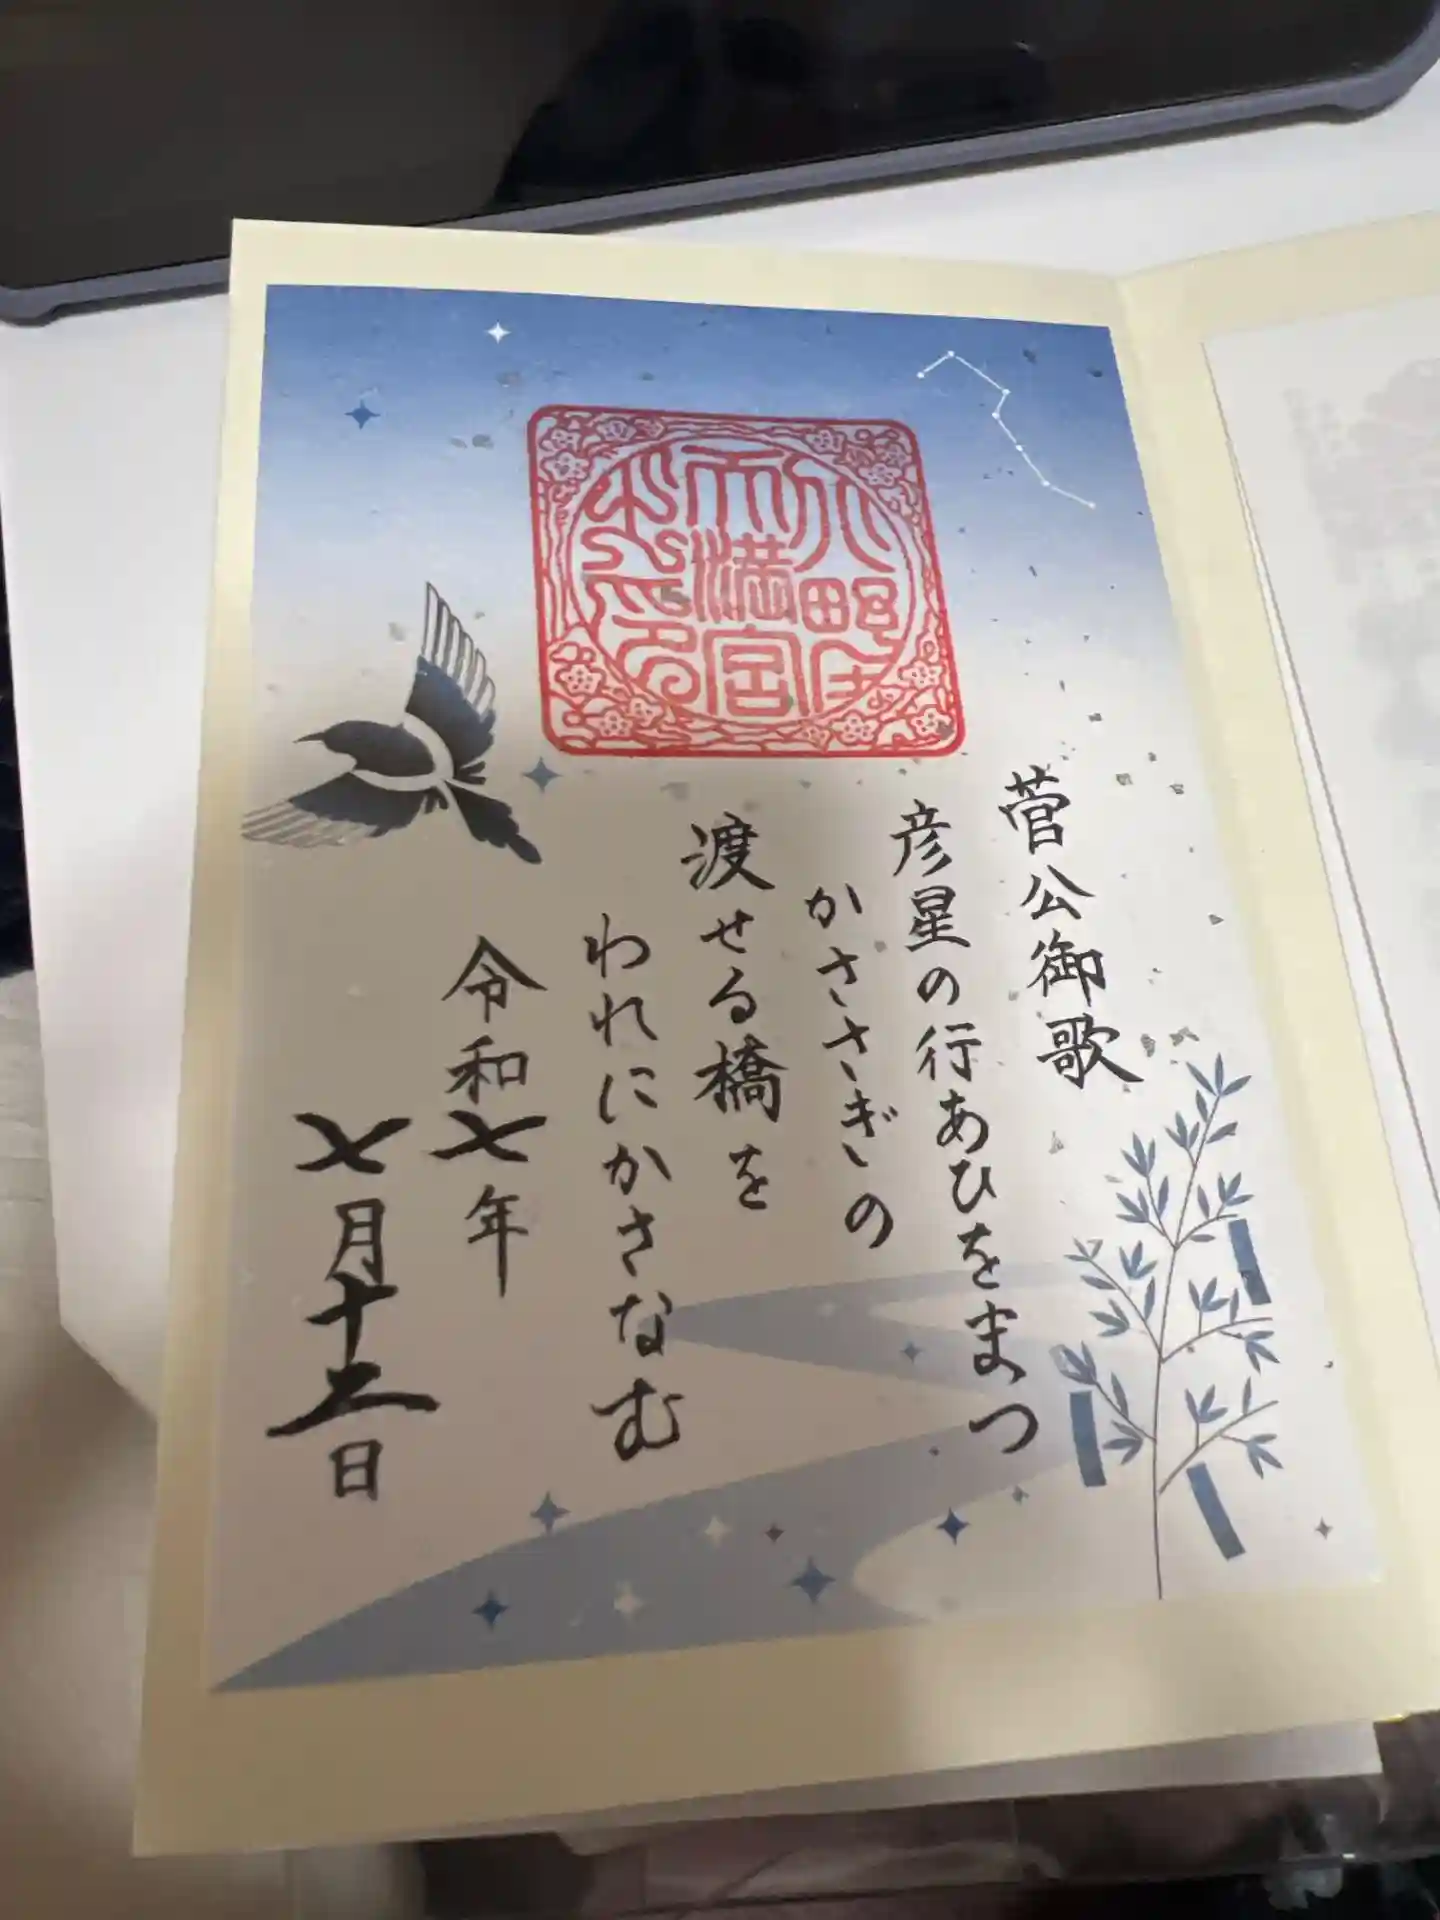 天満宮
菅公御歌
彦星の行あひをまつ
かささぎの
渡せる橋を
われにかさなむ
令和七年
七月十二日